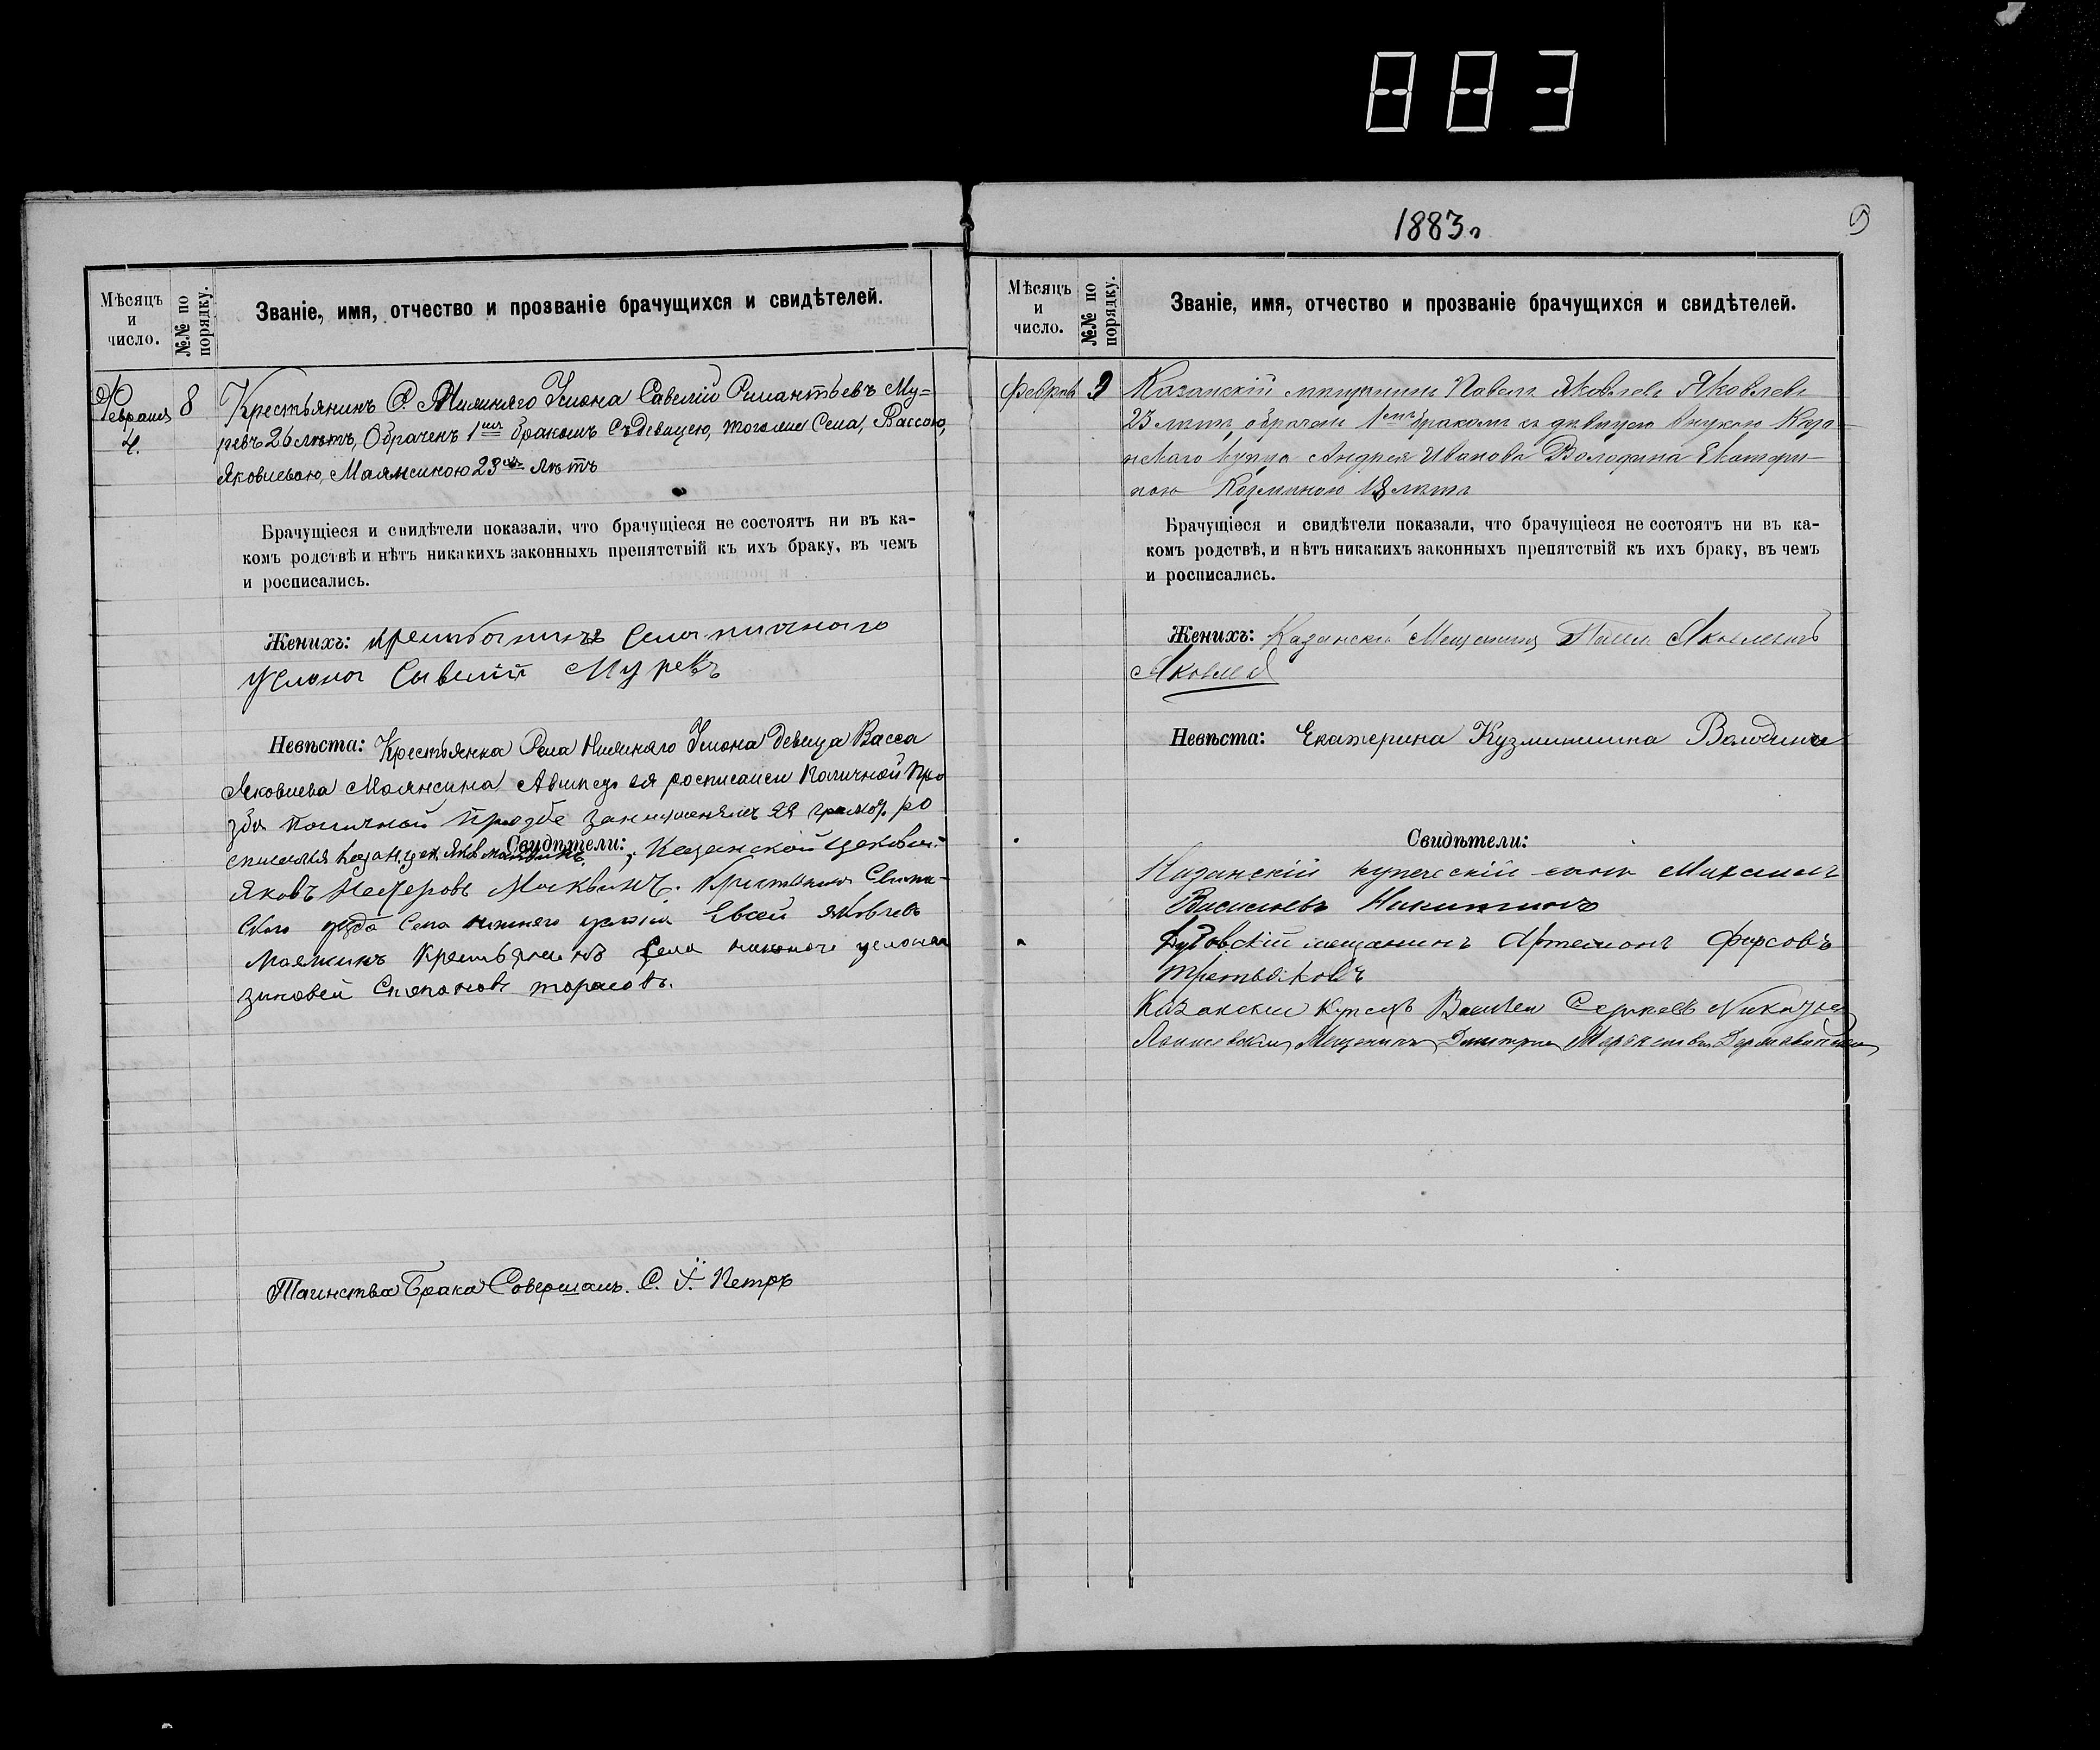 883
Мѣсяцъ
и
число.
№№ по
порядку.
Званіе, имя, отчество и прозваніе брачущихся и свидѣтелей.
Февраля
4.
8
Крестьянинъ С. Нижняго Услона Савелій Силантьевъ Му=
ревъ 26 лѣтъ, Обрачен 1мъ бракомъ Съ девицею, того же Села, Вассою,
Яковлевою, Маяксиною 23 лѣтъ
Брачущіеся и свидѣтели показали, что брачущіеся не состоятъ ни въ ка-
комъ родствѣ и нѣтъ никакихъ законныхъ препятствій къ ихъ браку, въ чемъ
и росписались.
Женихъ: крестьянинъ Села
Услона Савелій Муревъ
Невѣста: Крестьянка Села Нижняго Услона девица Васса
Яковлева
поличной прозбе
Свидѣтели: Казанской цеховой
Яковъ Москвинъ. Крестьянинъ
Села нижнего Евсей Яковлевъ
Маяксинъ Крестьянинъ Села услона
зиновей Степановъ тарасовъ.
Таинства Брака Совершалъ. С. І. Петръ
1883 г.
9
Мѣсяцъ
и
число.
№№ по
порядку.
Званіе, имя, отчество и прозваніе брачущихся и свидѣтелей.
Февраля
9
Казанскій мещанинъ Павелъ Яковлевъ Яковлевъ
23 лѣтъ, обрачен 1мъ бракомъ съ девицею внукою Каза-
нскаго купца Андрея Иванова Володина Екатери-
ною Козминою 18 лѣтъ
Брачущіеся и свидѣтели показали, что брачущіеся не состоятъ ни въ ка-
комъ родствѣ, и нѣтъ никакихъ законныхъ препятствій къ ихъ браку, въ чемъ
и росписались.
Женихъ: Казанскій Мещанинъ Павелъ Яковлевичъ
Яковлев
Невѣста: Екатерина Кузминишна Володина
Свидѣтели:
Казанскій купеческій сынъ Михаилъ
Васильевъ Никитинъ
мещанинъ Артемонъ Фирсовъ
Третьяковъ
Казански Купецъ Василеи
Мещанинъ Дмитрий